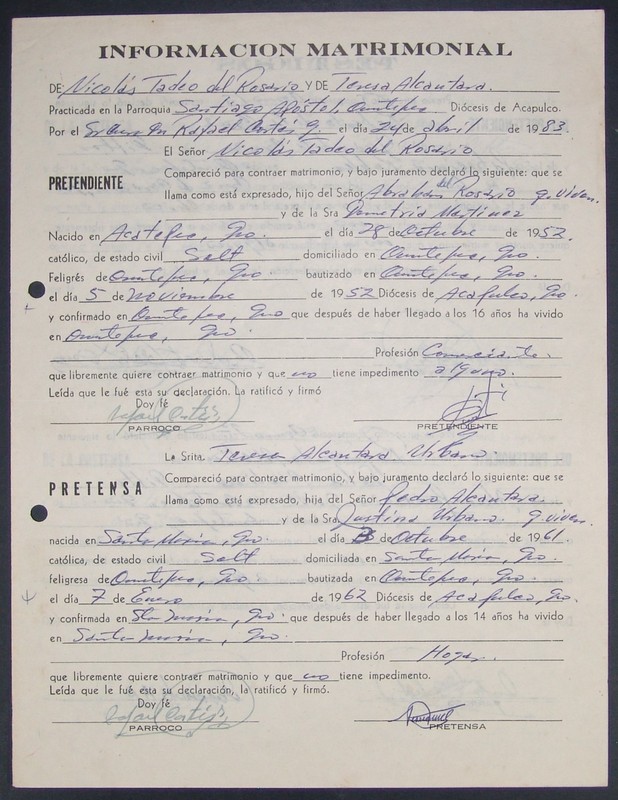 INFORMACION MATRIMONIAL
DE Nicolás Tadeo del Rosario Y DE Teresa Alcantara.
Practicada en la Parroquia Santiago Apóstol, Ometepec Diócesis de Acapulco.
Por el Rafael Cortés g. el día 24 de abril de 1983.
El Señor Nicolás Tadeo del Rosario
PRETENDIENTE
Compareció para contraer matrimonio, y bajo juramento declaró lo siguiente: que se
llama como está expresado, hijo del Señor Abraham del Rosario q. viven.
y de la Sra Demetria Martinez
Nacido en Acatepec, Gro. el día 28 de Octubre de 1952.
católico, de estado civil Solt domiciliado en Ometepec, Gro.
Feligrés de Ometepec, Gro bautizado en Ometepec, Gro.
el día 5 de noviembre de 1952 Diócesis de Acapulco, Gro.
y confirmado en Ometepec, Gro que después de haber llegado a los 16 años ha vivido
en Ometepec, Gro.
Profesión Comerciante.
que libremente quiere contraer matrimonio y que no tiene impedimento alguno.
Leída que le fué esta su declaración. La ratificó y firmó
Doy fé
Rafael Cortés
PARROCO PRETENDIENTE
La Srita. Teresa Alcantara Urbano
PRETENSA
Compareció para contraer matrimonio, y bajo juramento declaró lo siguiente: que se
llama como está expresado, hija del Señor Pedro Alcantara.
y de la Sra Justina Urbano. q. viven.
nacida en Santa María, Gro. el día de Octubre de 1961.
católica, de estado civil Solt domiciliada en Santa María, Gro.
feligresa de Ometepec, Gro bautizada en Ometepec, Gro.
el día 7 de Enero de 1962 Diócesis de Acapulco, Gro.
y confirmada en Sta María, Gro. que después de haber llegado a los 14 años ha vivido
en Santa María, Gro.
Profesión Hogar.
que libremente quiere contraer matrimonio y que no tiene impedimento.
Leída que le fué esta su declaración, la ratificó y firmó.
Doy fé
Rafael Cortés
PARROCO PRETENSA